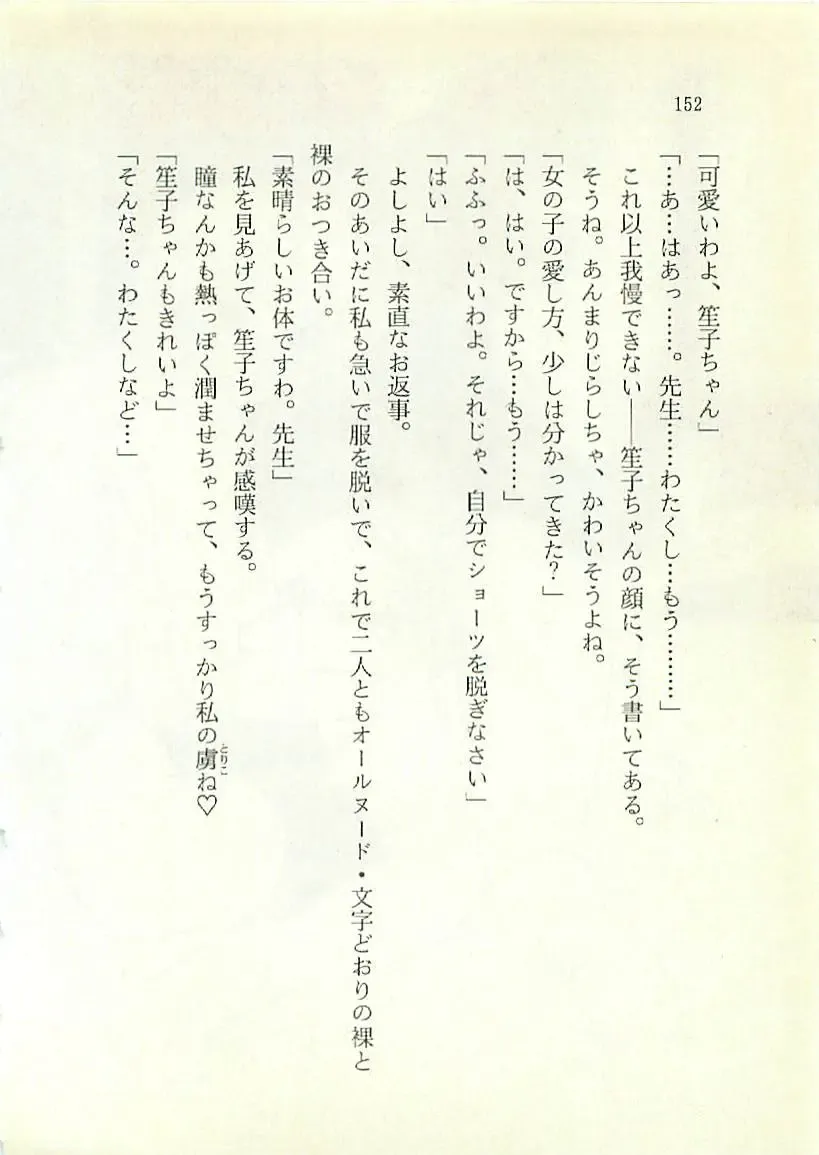 152
「可愛いわよ、笙子ちゃん」
「…あ…はあっ……。先生……わたくし…もう………」
これ以上我慢できない――笙子ちゃんの顔に、そう書いてある。
そうね。あんまりじらしちゃ、かわいそうよね。
「女の子の愛し方、少しは分かってきた?」
「は、はい。ですから…もう……」
「ふふっ。いいわよ。それじゃ、自分でショーツを脱ぎなさい」
「はい」
よしよし、素直なお返事。
そのあいだに私も急いで服を脱いで、これで二人ともオールヌード・文字どおりの裸と
裸のおつき合い。
「素晴らしいお体ですわ。先生」
私を見あげて、笙子ちゃんが感嘆する。
瞳なんかも熱っぽく潤ませちゃって、もうすっかり私の虜ね♡
とりこ
「笙子ちゃんもきれいよ」
「そんな…。わたくしなど…」